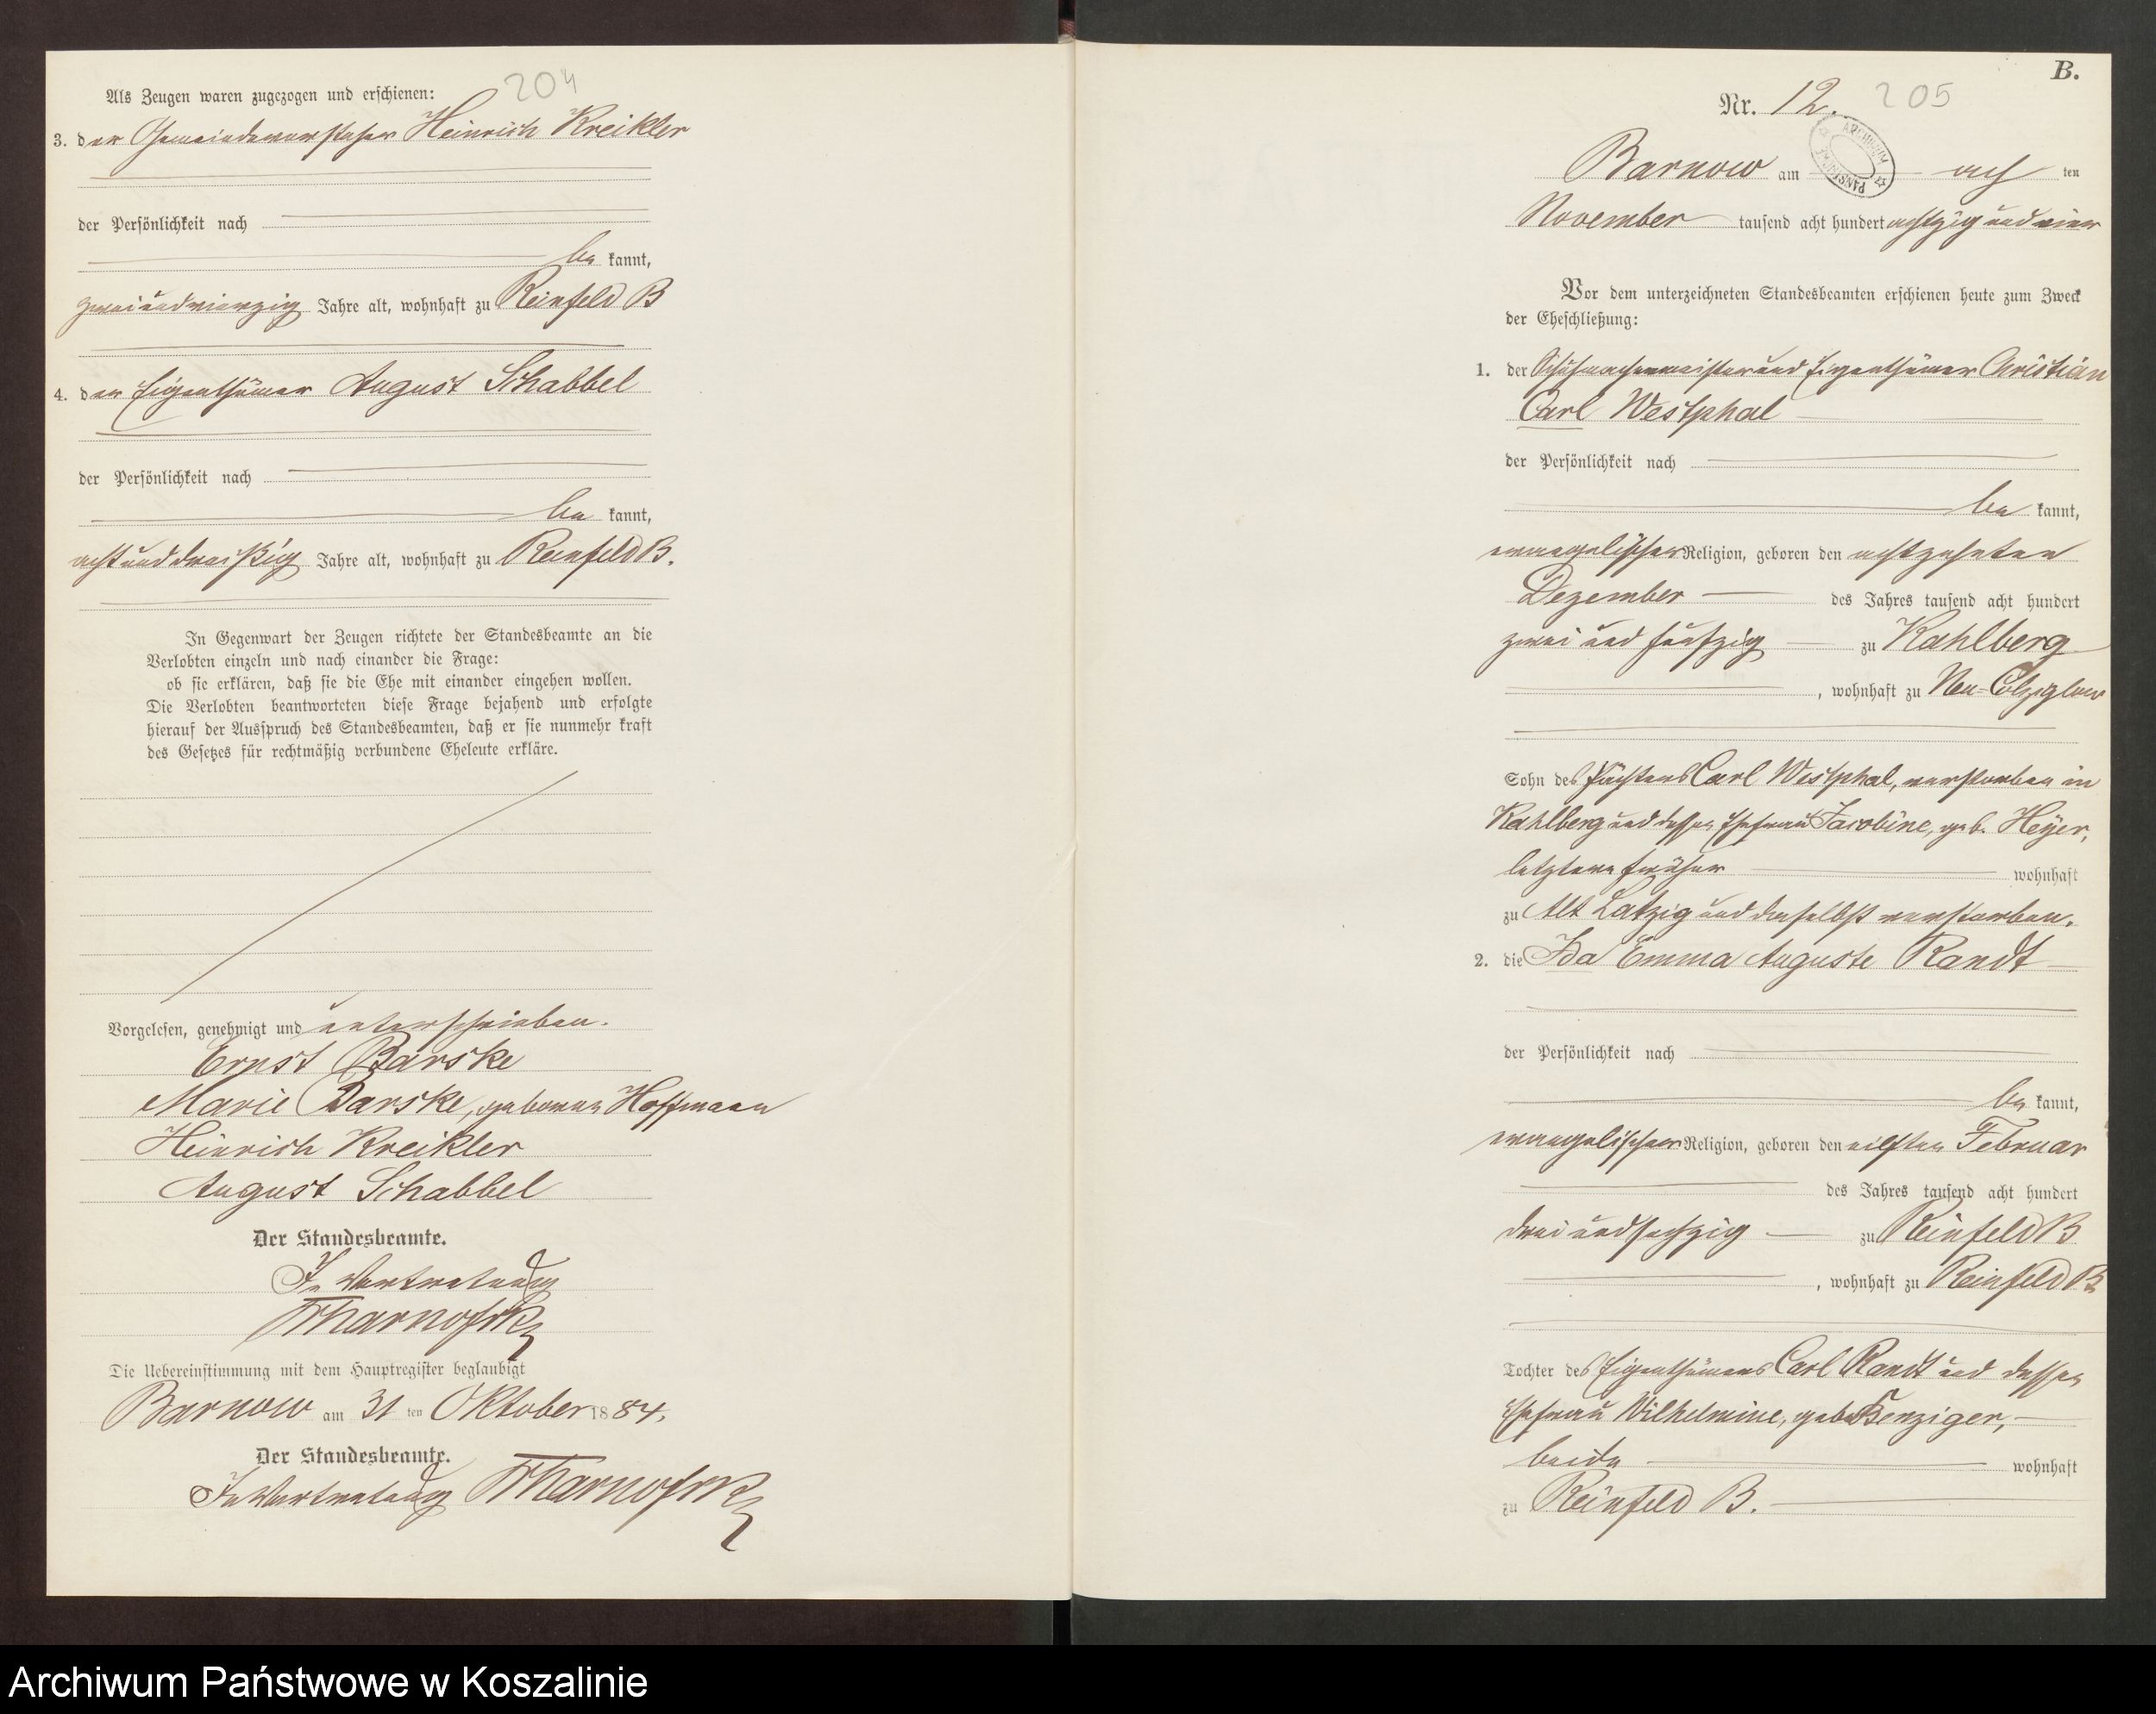 204
Als Zeugen waren zugezogen und erschienen:
3. der Gemeindevorsteher Heinrich Kreikler
der Persönlichkeit nach
be kannt,
zweiundvierzig Jahre alt, wohnhaft zu Reinfeld B
4. der Eigenthümer August Schabbel
der Persönlichkeit nach
be kannt,
achtunddreißig Jahre alt, wohnhaft zu Reinfeld B.
In Gegenwart der Zeugen richtete der Standesbeamte an die
Verlobten einzeln und nach einander die Frage:
ob sie erklären, daß sie die Ehe mit einander eingehen wollen.
Die Verlobten beantworteten diese Frage bejahend und erfolgte
hierauf der Ausspruch des Standesbeamten, daß er sie nunmehr kraft
des Gesetzes für rechtmäßig verbundene Eheleute erkläre.
Vorgelesen, genehmigt und unterschrieben.
Ernst Barske
Marie Barske, geborene Hoffmann
Heinrich Kreikler
August Schabbel
Der Standesbeamte.
In Vertretung
Die Uebereinstimmung mit dem Hauptregister beglaubigt
Barnow am 31 ten Oktober 1884.
Der Standesbeamte.
In Vertretung
B.
Nr. 12. 205
ARCHIWUM PAŃSTWOWE
Barnow am acht ten
November tausend acht hundert achtzig und vier
Vor dem unterzeichneten Standesbeamten erschienen heute zum Zweck
der Eheschließung:
1. der Schuhmachermeister und Eigenthümer Christian
Carl Westphal
der Persönlichkeit nach
be kannt,
evangelischer Religion, geboren den achtzehnten
Dezember des Jahres tausend acht hundert
zwei und fünfzig zu Kahlberg
, wohnhaft zu Neu-Colziglow
Sohn des Pächters Carl Westphal, verstorben in
Kahlberg und dessen Ehefrau Jacobine, geb. Heyer,
letztere früher wohnhaft
zu Alt Latzig und daselbst verstorben.
2. die Ida Emma Auguste Randt
der Persönlichkeit nach
be kannt,
evangelischer Religion, geboren den eilften Februar
des Jahres tausend acht hundert
drei und sechzig zu Reinfeld B
, wohnhaft zu Reinfeld B
Tochter des Eigenthümers Carl Randt und dessen
Ehefrau Wilhelmine, geb.
beide wohnhaft
zu Reinfeld B.
Archiwum Państwowe w Koszalinie